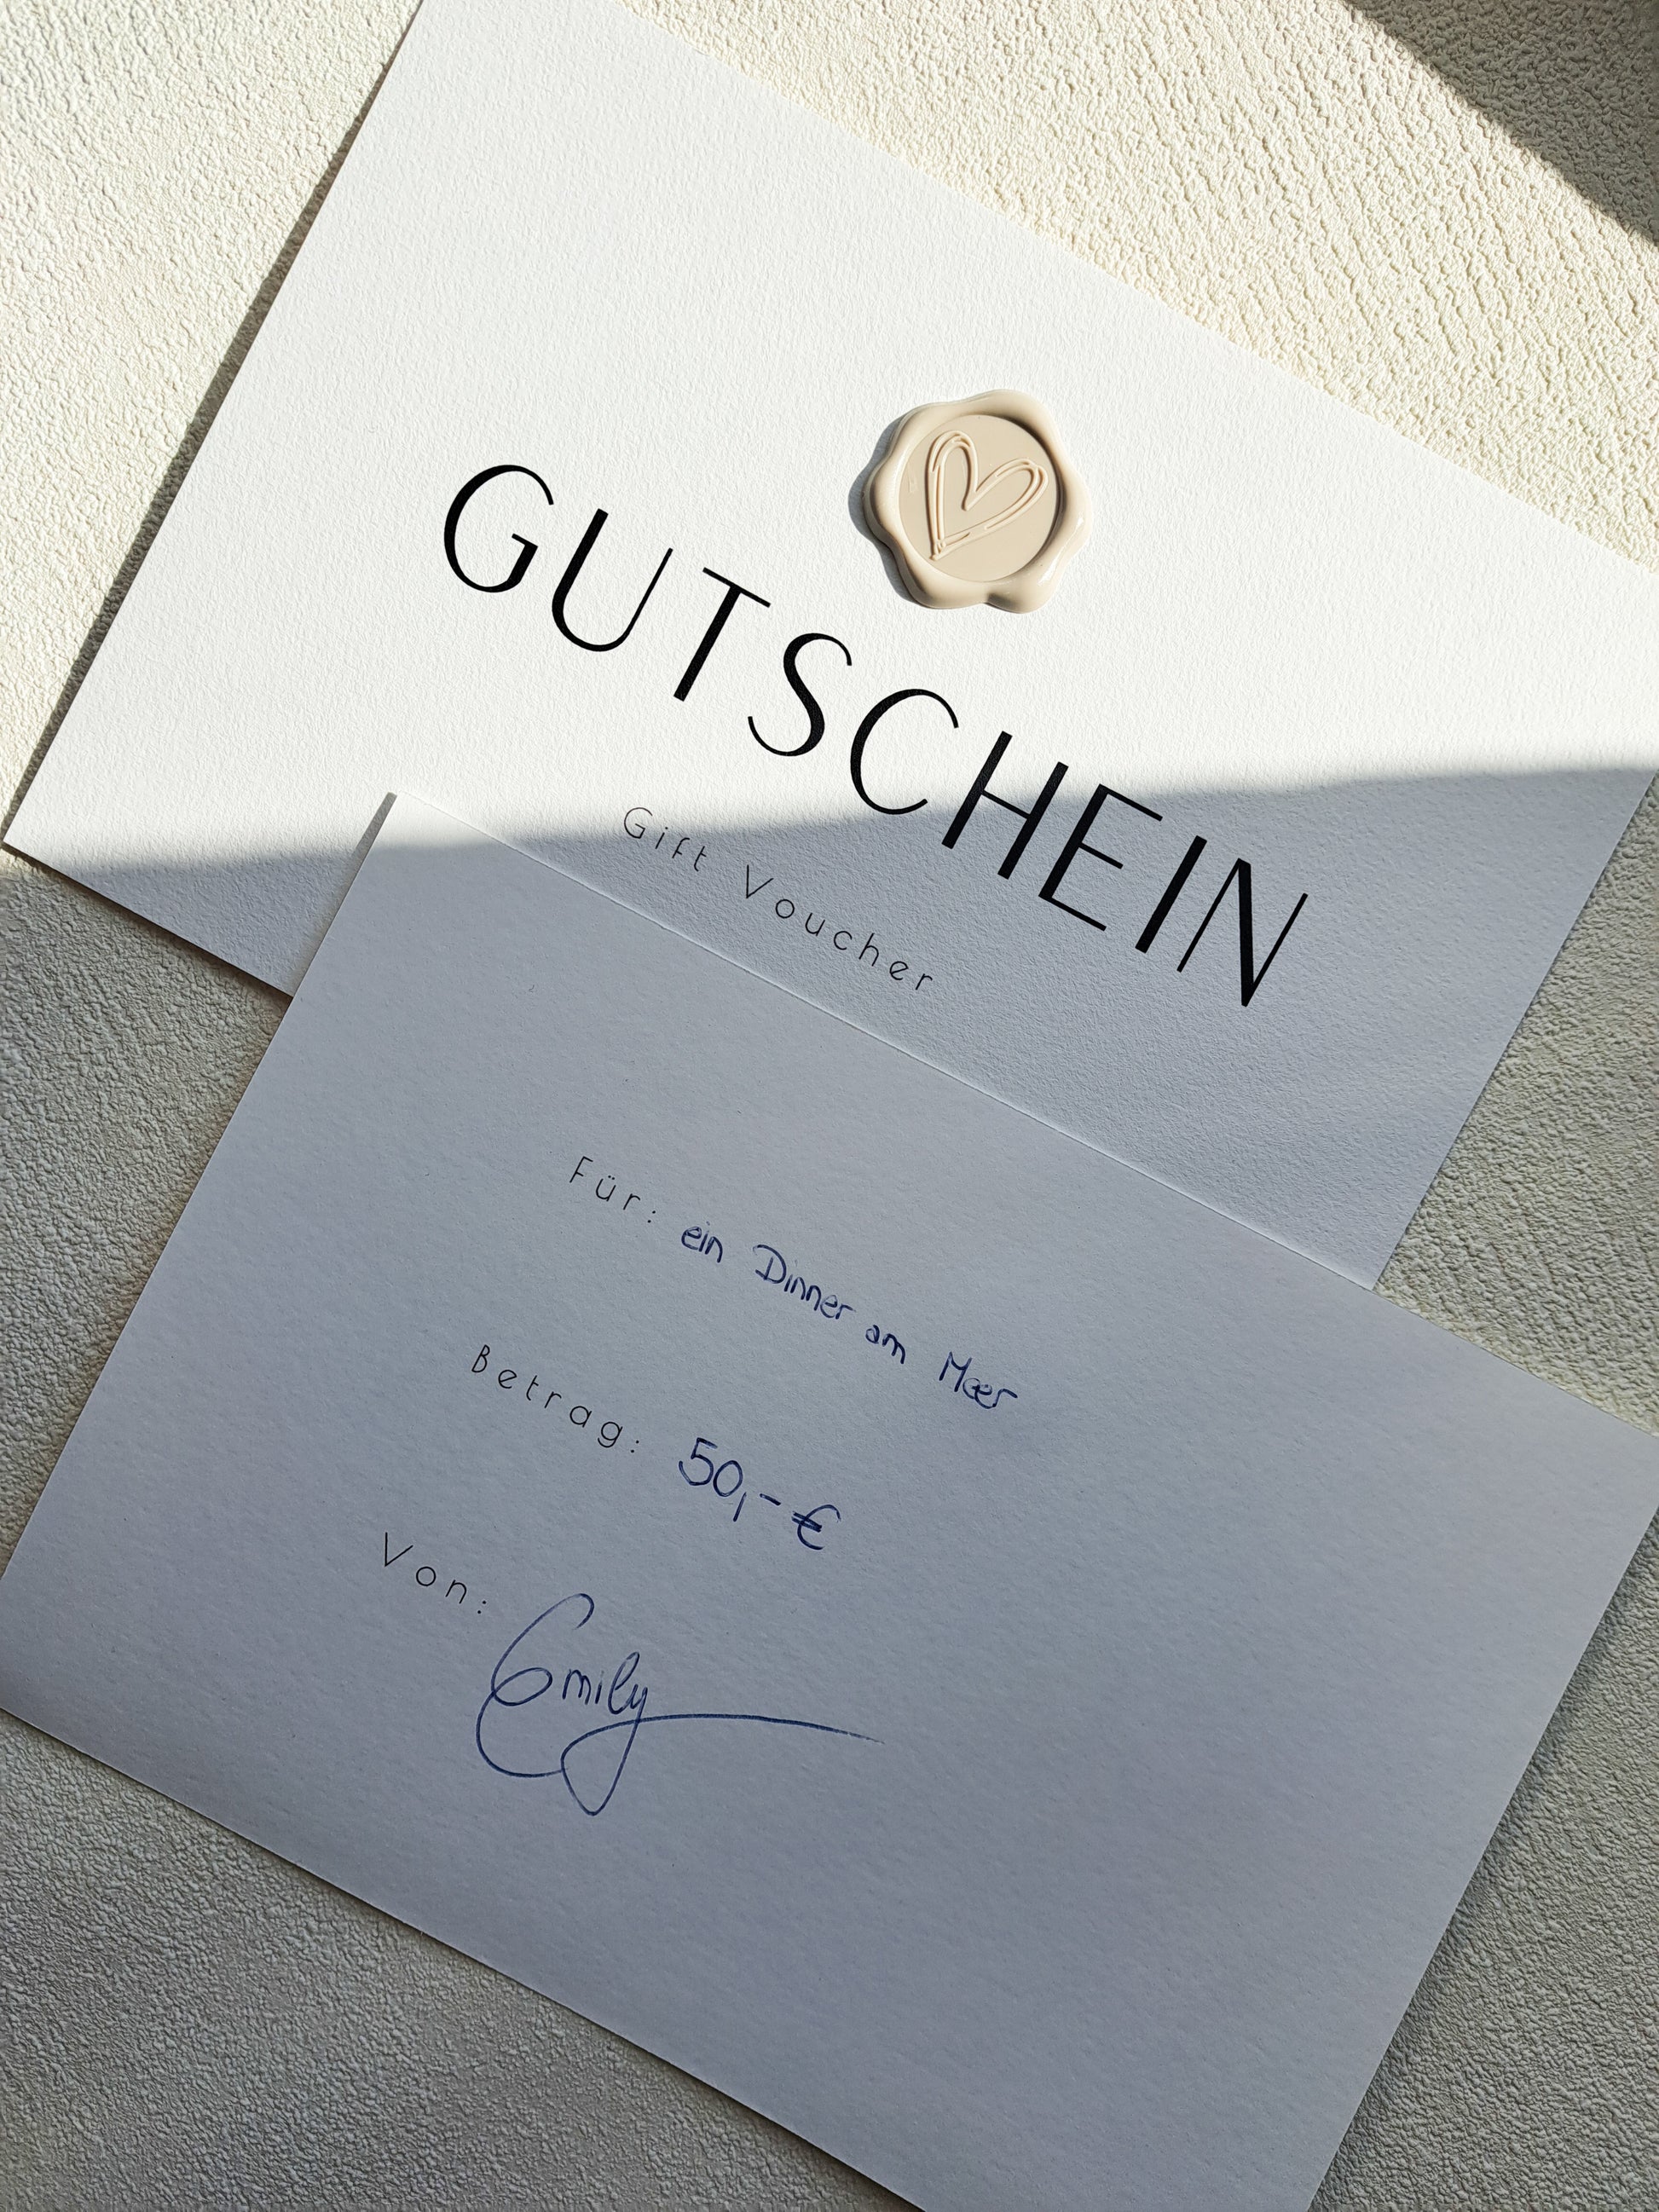 GUTSCHEIN
Gift Voucher
Für: ein Dinner am Meer
Betrag: 50,- €
Von: Emily